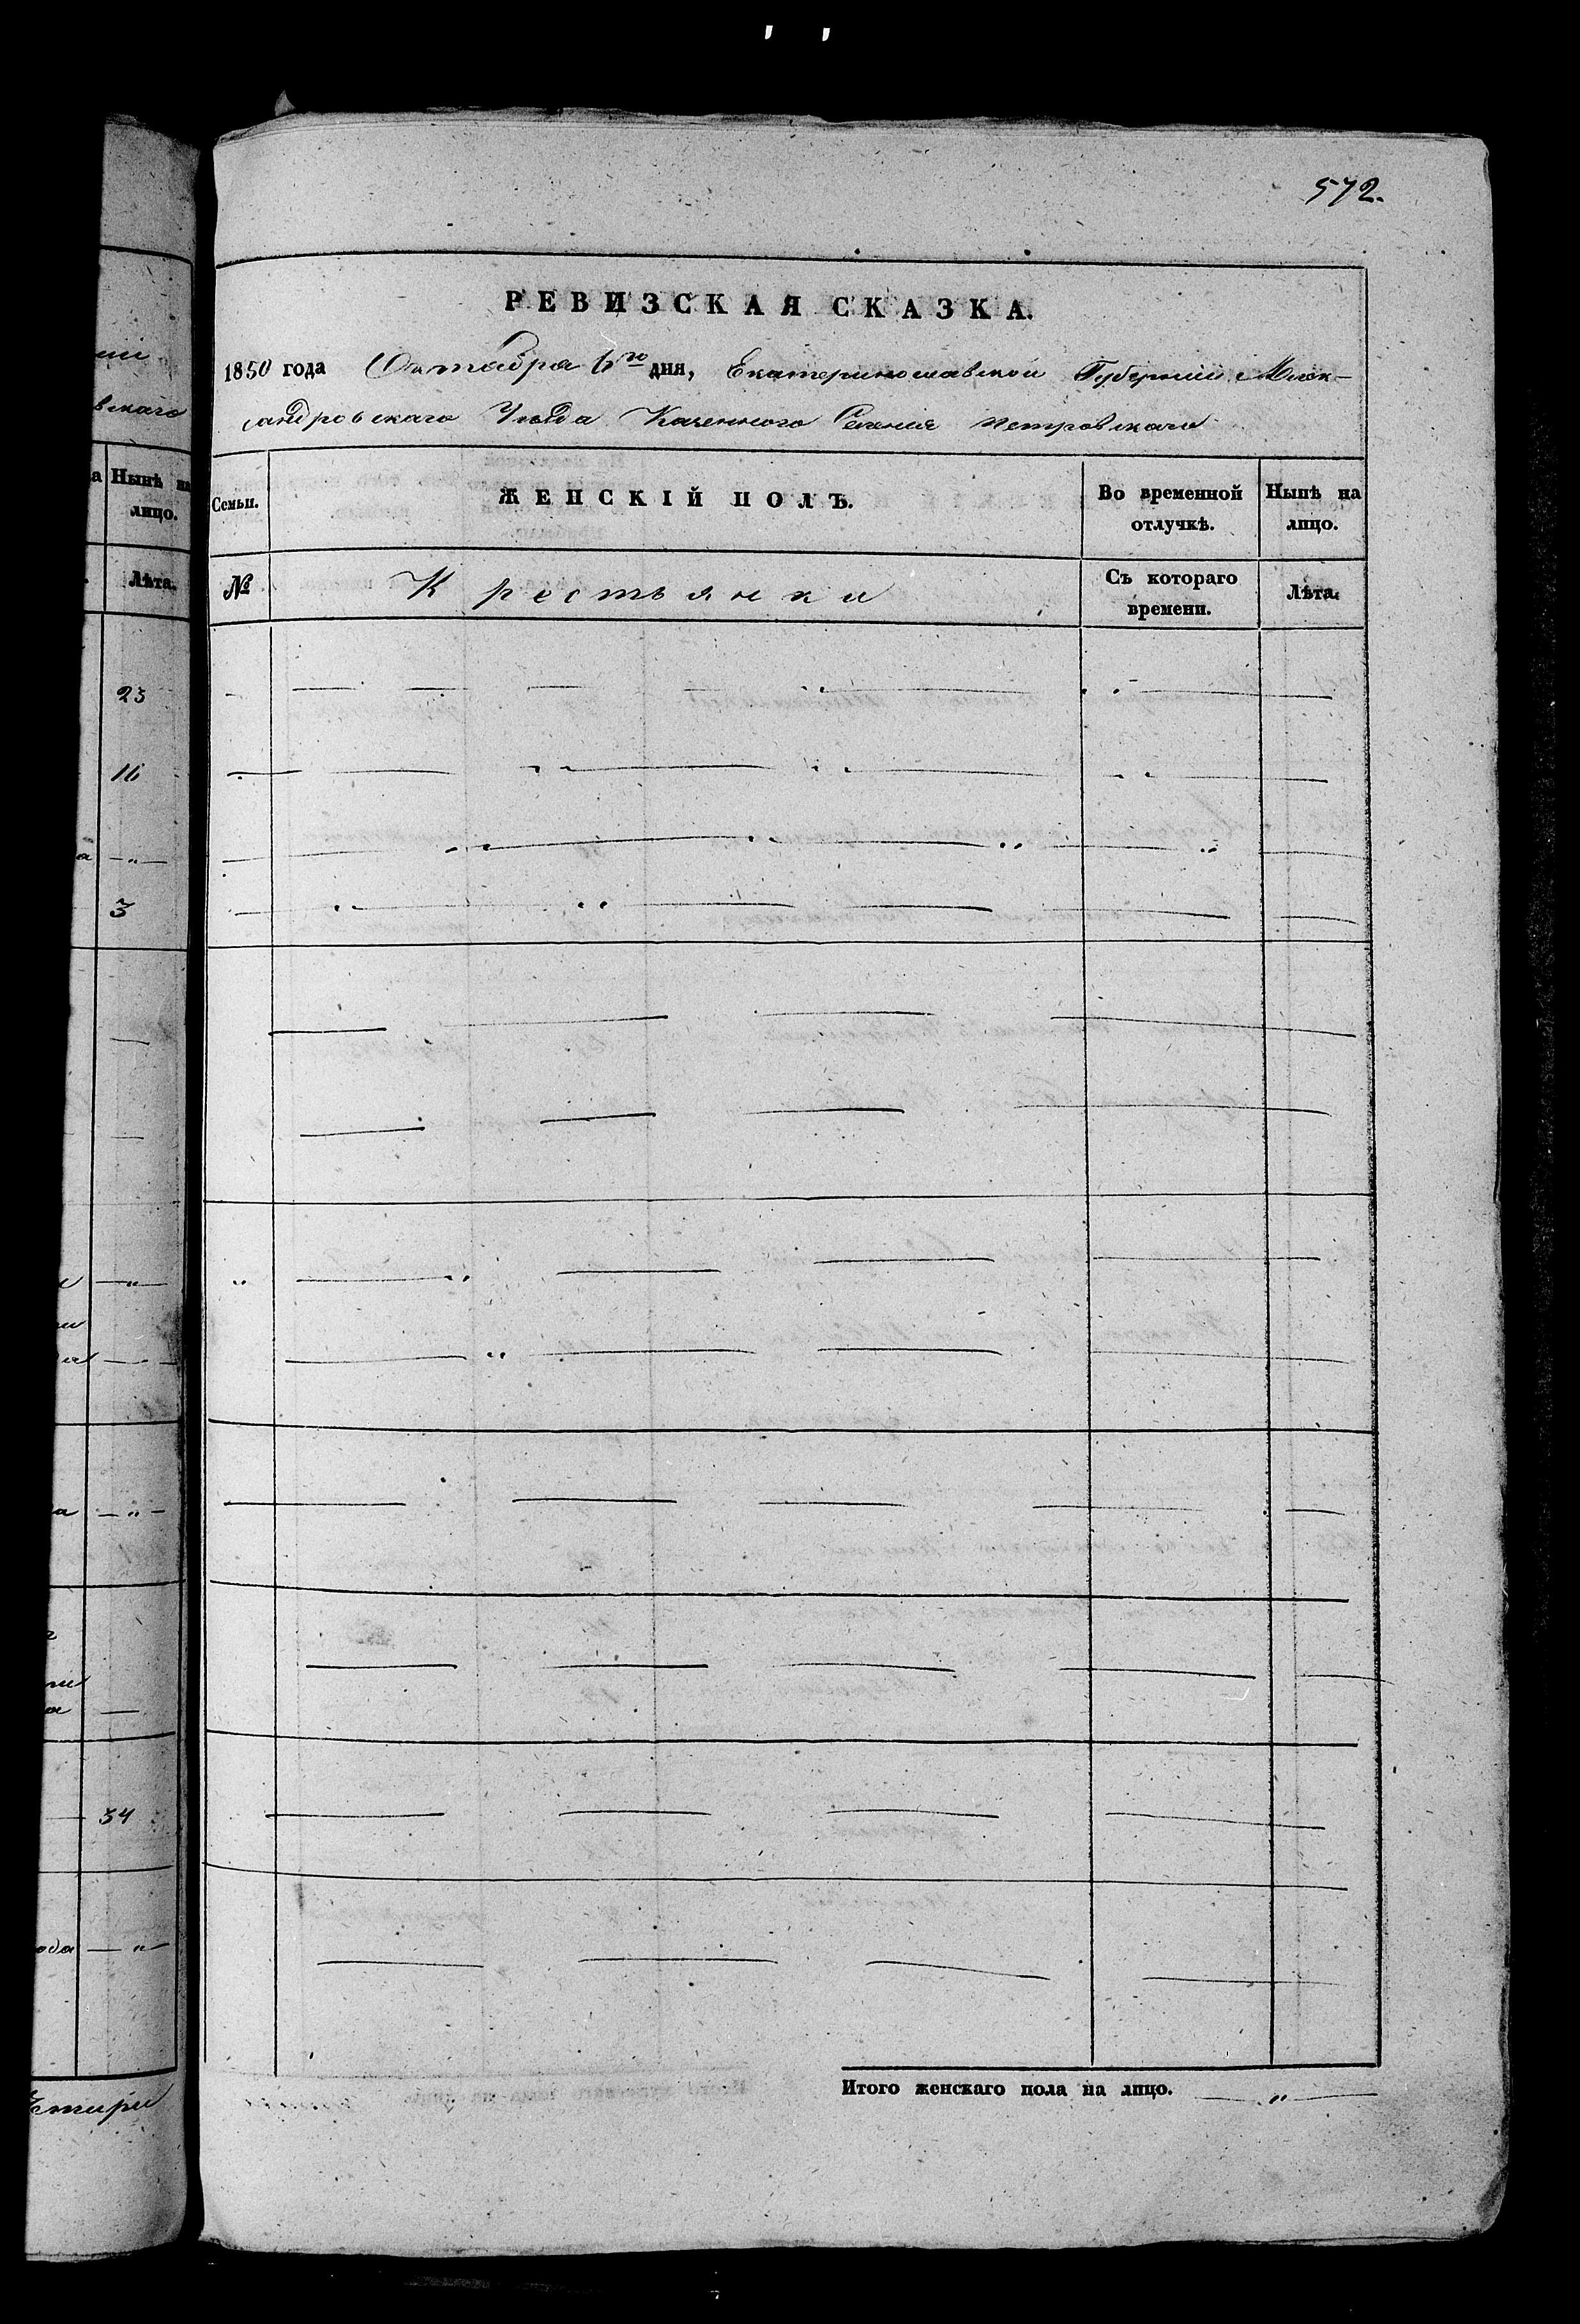 572.
РЕВИЗСКАЯ СКАЗКА.
1850 года Октабра 6го дня, Екатеринославской Губерніи Алек-
сандровскаго Уѣзда Казенного Селенія Петровскаго
вскаго
а Нынѣ на
лицо.
Лѣта.
Семьи.
ЖЕНСКІЙ ПОЛЪ.
Во временной
отлучкѣ.
Нынѣ на
лицо.
№
Крестьянки
Съ котораго
времени.
Лѣта.
23
16
а — " —
3
— " —
а — " —
34
ода — " —
Итого женскаго пола на лицо. — " —